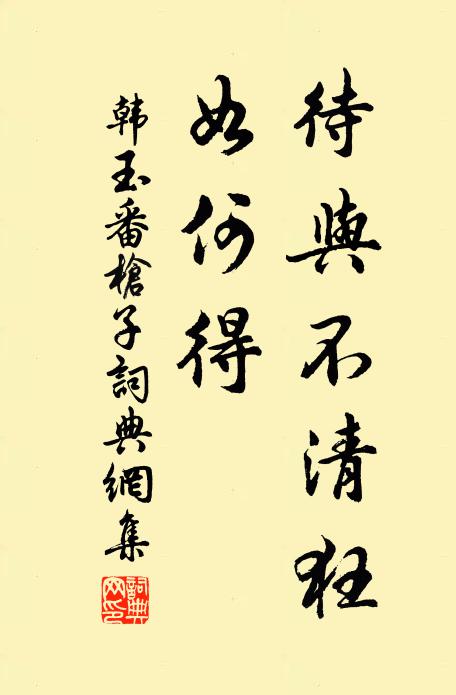 待與不清狂
如何得
韩玉番槍子詞典網集
詞典网印